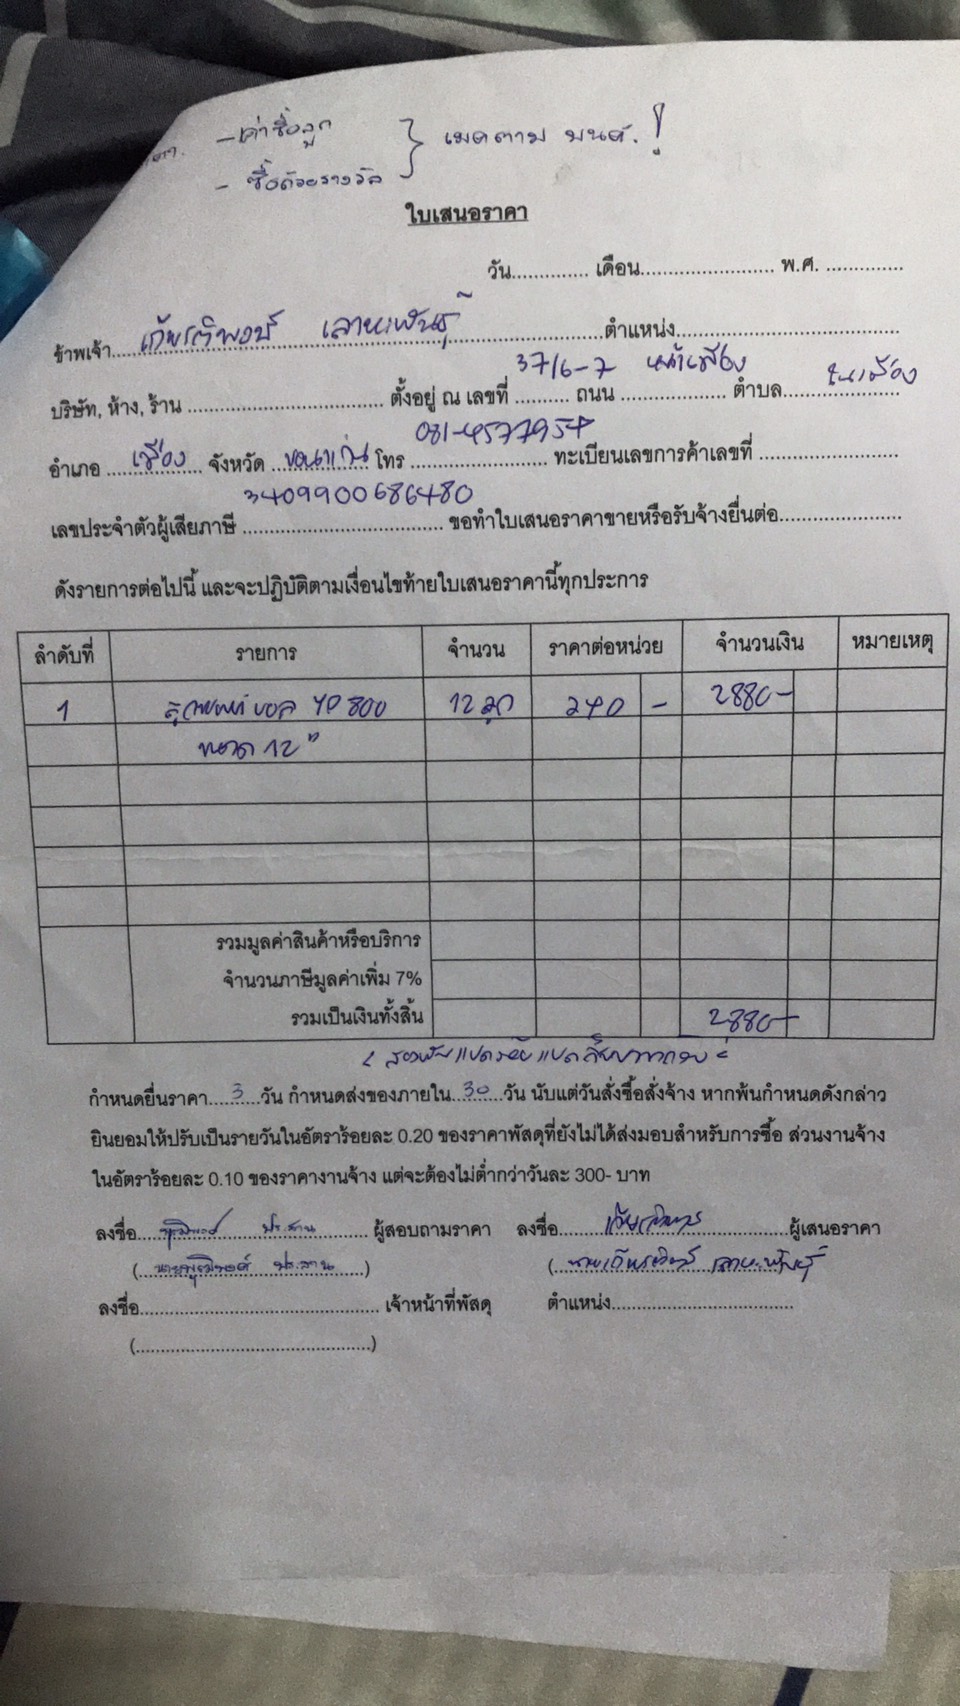 - ค่าซื้อลูก
- ซื้อถ้วยรางวัล
ใบเสนอราคา
วัน.............. เดือน........................ พ.ศ. ..............
ข้าพเจ้า...เกียรติพงษ์ เลาหะพันธุ์...ตำแหน่ง........................................
บริษัท, ห้าง, ร้าน ................................... ตั้งอยู่ ณ เลขที่ 37/6-7 ถนน หน้าเมือง ตำบล ในเมือง
อำเภอ เมือง จังหวัด ขอนแก่น โทร 081-4577954 ทะเบียนเลขการค้าเลขที่ .........................
เลขประจำตัวผู้เสียภาษี 3409900686480 ขอทำใบเสนอราคาขายหรือรับจ้างยื่นต่อ......................
ดังรายการต่อไปนี้ และจะปฏิบัติตามเงื่อนไขท้ายใบเสนอราคานี้ทุกประการ
ลำดับที่ รายการ จำนวน ราคาต่อหน่วย จำนวนเงิน หมายเหตุ
1 บอล YP 800 12 ลูก 240 - 2880-
ขนาด 12"
รวมมูลค่าสินค้าหรือบริการ
จำนวนภาษีมูลค่าเพิ่ม 7%
รวมเป็นเงินทั้งสิ้น 2880-
สองพันแปดร้อยแปดสิบบาทถ้วน
กำหนดยื่นราคา...3...วัน กำหนดส่งของภายใน...30...วัน นับแต่วันสั่งซื้อสั่งจ้าง หากพ้นกำหนดดังกล่าว
ยินยอมให้ปรับเป็นรายวันในอัตราร้อยละ 0.20 ของราคาพัสดุที่ยังไม่ได้ส่งมอบสำหรับการซื้อ ส่วนงานจ้าง
ในอัตราร้อยละ 0.10 ของราคางานจ้าง แต่จะต้องไม่ต่ำกว่าวันละ 300- บาท
ลงชื่อ ประสาน ผู้สอบถามราคา ลงชื่อ........................ผู้เสนอราคา
(ประสาน) (นายเกียรติพงษ์ เลาหะพันธุ์
ลงชื่อ............................................ เจ้าหน้าที่พัสดุ ตำแหน่ง..................................
(............................................)